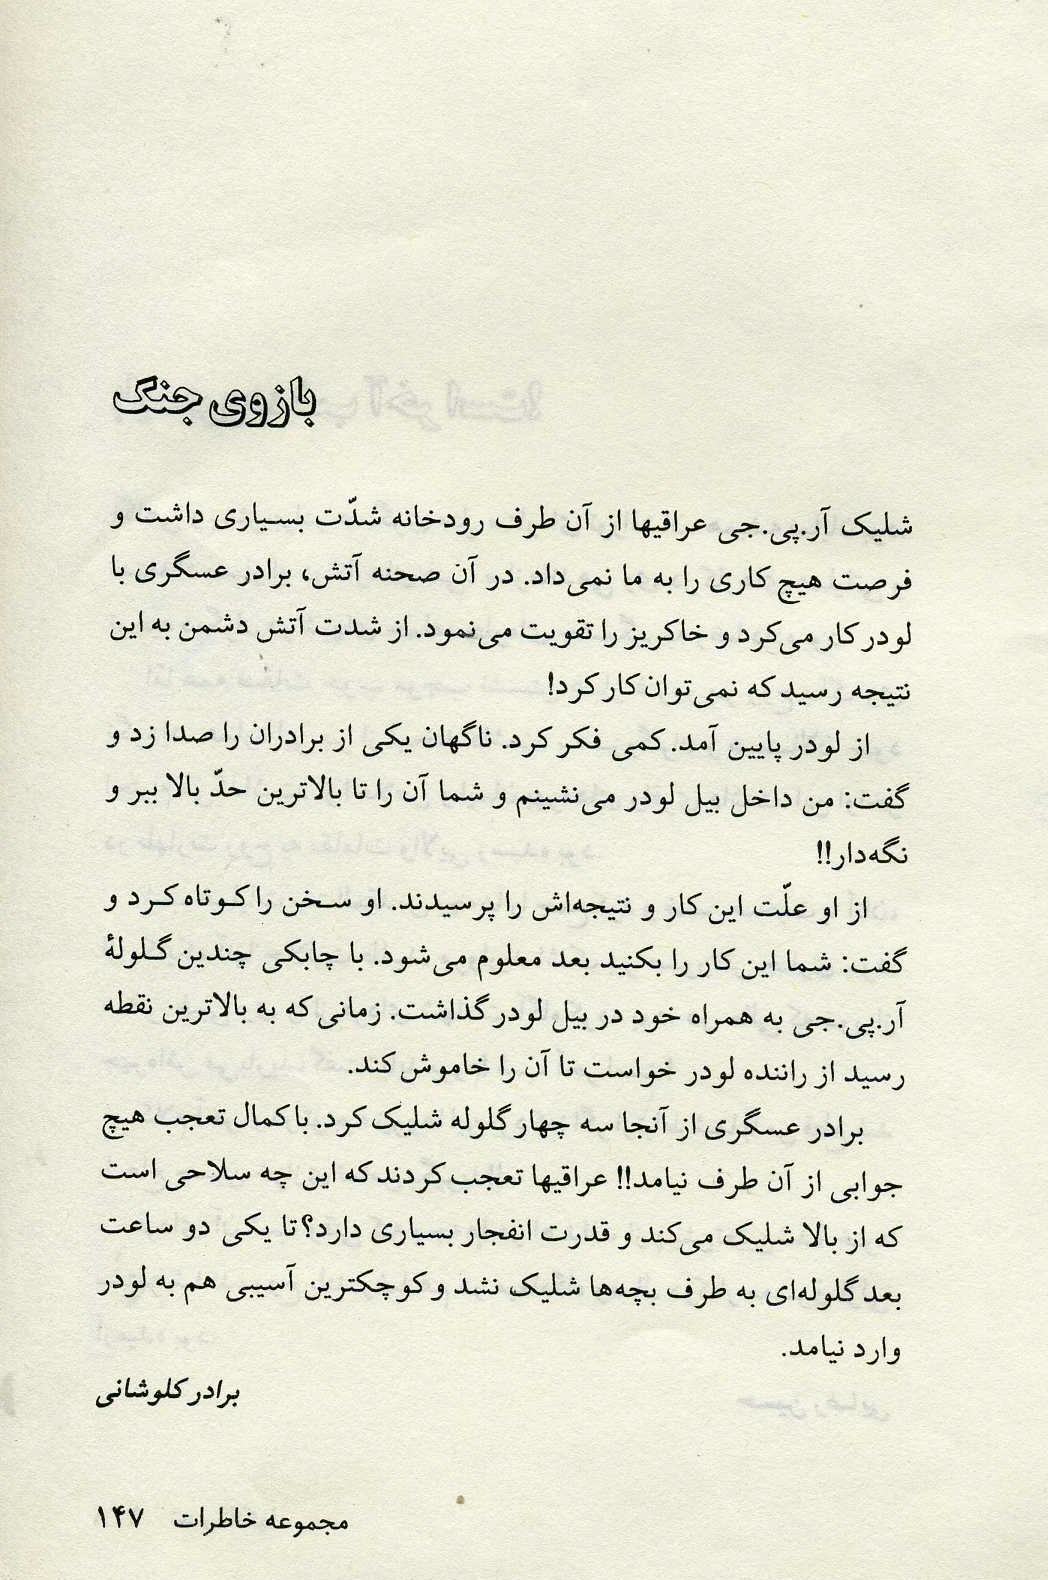 بازوی جنگ
شلیک آر.پی.جی عراقیها از آن طرف رودخانه شدّت بسیاری داشت و
فرصت هیچ کاری را به ما نمی‌داد. در آن صحنه آتش، برادر عسگری با
لودر کار می‌کرد و خاکریز را تقویت می‌نمود. از شدت آتش دشمن به این
نتیجه رسید که نمی‌توان کار کرد!
از لودر پایین آمد. کمی فکر کرد. ناگهان یکی از برادران را صدا زد و
گفت: من داخل بیل لودر می‌نشینم و شما آن را تا بالاترین حدّ بالا ببر و
نگه‌دار!!
از او علّت این کار و نتیجه‌اش را پرسیدند. او سخن را کوتاه کرد و
گفت: شما این کار را بکنید بعد معلوم می‌شود. با چابکی چندین گلولهٔ
آر.پی.جی به همراه خود در بیل لودر گذاشت. زمانی که به بالاترین نقطه
رسید از راننده لودر خواست تا آن را خاموش کند.
برادر عسگری از آنجا سه چهار گلوله شلیک کرد. با کمال تعجب هیچ
جوابی از آن طرف نیامد!! عراقیها تعجب کردند که این چه سلاحی است
که از بالا شلیک می‌کند و قدرت انفجار بسیاری دارد؟ تا یکی دو ساعت
بعد گلوله‌ای به طرف بچه‌ها شلیک نشد و کوچکترین آسیبی هم به لودر
وارد نیامد.
برادر کلوشانی
مجموعه خاطرات ۱۴۷